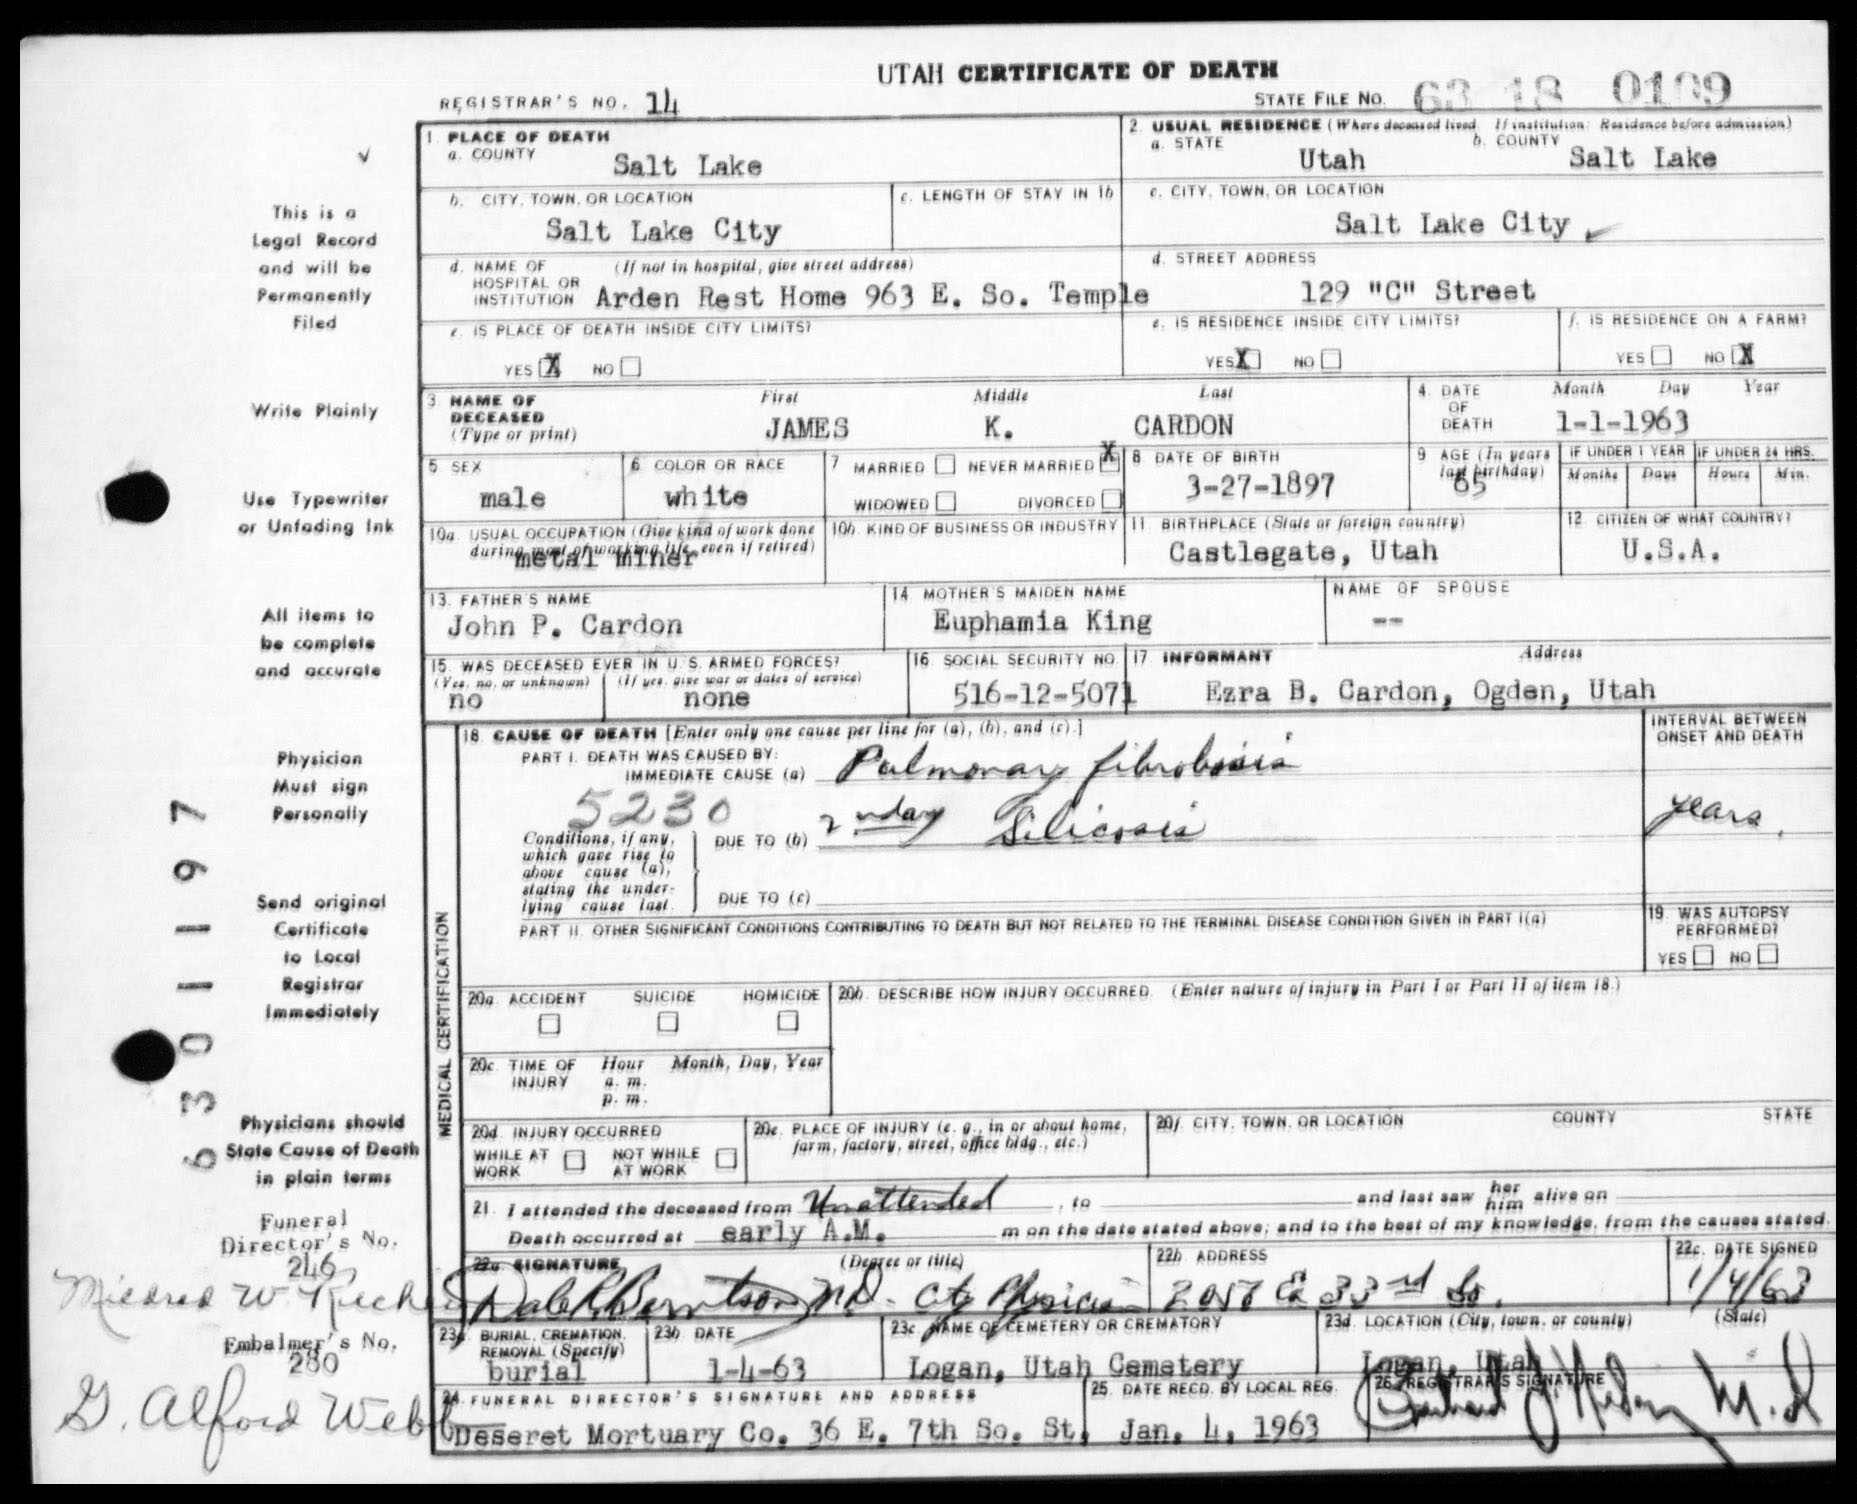 UTAH CERTIFICATE OF DEATH
REGISTRAR'S NO. 14
STATE FILE NO. 63 18 0109
1. PLACE OF DEATH
a. COUNTY
Salt Lake
2. USUAL RESIDENCE (Where deceased lived. If institution: Residence before admission)
a. STATE Utah b. COUNTY Salt Lake
b. CITY, TOWN, OR LOCATION
Salt Lake City
c. LENGTH OF STAY IN 1b
c. CITY, TOWN, OR LOCATION
Salt Lake City
d. NAME OF HOSPITAL OR INSTITUTION (If not in hospital, give street address)
Arden Rest Home 963 E. So. Temple
d. STREET ADDRESS
129 "C" Street
e. IS PLACE OF DEATH INSIDE CITY LIMITS?
YES X NO
e. IS RESIDENCE INSIDE CITY LIMITS?
YES X NO
f. IS RESIDENCE ON A FARM?
YES NO X
3. NAME OF DECEASED (Type or print)
First Middle Last
JAMES K. CARDON
4. DATE OF DEATH Month Day Year
1-1-1963
5. SEX
male
6. COLOR OR RACE
white
7. MARRIED NEVER MARRIED X
WIDOWED DIVORCED
8. DATE OF BIRTH
3-27-1897
9. AGE (In years last birthday)
65
IF UNDER 1 YEAR
Months Days
IF UNDER 24 HRS.
Hours Min.
10a. USUAL OCCUPATION (Give kind of work done during most of working life, even if retired)
metal miner
10b. KIND OF BUSINESS OR INDUSTRY
11. BIRTHPLACE (State or foreign country)
Castlegate, Utah
12. CITIZEN OF WHAT COUNTRY?
U.S.A.
13. FATHER'S NAME
John P. Cardon
14. MOTHER'S MAIDEN NAME
Euphamia King
NAME OF SPOUSE
--
15. WAS DECEASED EVER IN U.S. ARMED FORCES?
(Yes, no, or unknown) (If yes, give war or dates of service)
no none
16. SOCIAL SECURITY NO.
516-12-5071
17. INFORMANT Address
Ezra B. Cardon, Ogden, Utah
MEDICAL CERTIFICATION
18. CAUSE OF DEATH [Enter only one cause per line for (a), (b), and (c).]
INTERVAL BETWEEN ONSET AND DEATH
PART I. DEATH WAS CAUSED BY:
IMMEDIATE CAUSE (a) Pulmonary
5230
Conditions, if any, which gave rise to above cause (a), stating the underlying cause last.
DUE TO (b) 2nday Silicosis
years.
DUE TO (c)
PART II. OTHER SIGNIFICANT CONDITIONS CONTRIBUTING TO DEATH BUT NOT RELATED TO THE TERMINAL DISEASE CONDITION GIVEN IN PART I(a)
19. WAS AUTOPSY PERFORMED?
YES NO
20a. ACCIDENT SUICIDE HOMICIDE
20b. DESCRIBE HOW INJURY OCCURRED. (Enter nature of injury in Part I or Part II of item 18.)
20c. TIME OF INJURY Hour Month, Day, Year
a. m.
p. m.
20d. INJURY OCCURRED
WHILE AT WORK NOT WHILE AT WORK
20e. PLACE OF INJURY (e. g., in or about home, farm, factory, street, office bldg., etc.)
20f. CITY, TOWN, OR LOCATION COUNTY STATE
21. I attended the deceased from Unattended, to and last saw her him alive on
Death occurred at early A.M. m on the date stated above; and to the best of my knowledge, from the causes stated.
22a. SIGNATURE (Degree or title)
M.D. City Physician
22b. ADDRESS
E 33rd So.
22c. DATE SIGNED
1/4/63
23a. BURIAL, CREMATION, REMOVAL (Specify)
burial
23b. DATE
1-4-63
23c. NAME OF CEMETERY OR CREMATORY
Logan, Utah Cemetery
23d. LOCATION (City, town, or county) (State)
Logan, Utah
24. FUNERAL DIRECTOR'S SIGNATURE AND ADDRESS
Deseret Mortuary Co. 36 E. 7th So. St.
25. DATE RECD. BY LOCAL REG.
Jan. 4, 1963
26. REGISTRAR'S SIGNATURE
M.D.
This is a
Legal Record
and will be
Permanently
Filed
Write Plainly
Use Typewriter
or Unfading Ink
All items to
be complete
and accurate
Physician
Must sign
Personally
Send original
Certificate
to Local
Registrar
Immediately
Physicians should
State Cause of Death
in plain terms
Funeral
Director's No.
246
Mildred W.
Embalmer's No.
280
G. Alford Webb
6301197